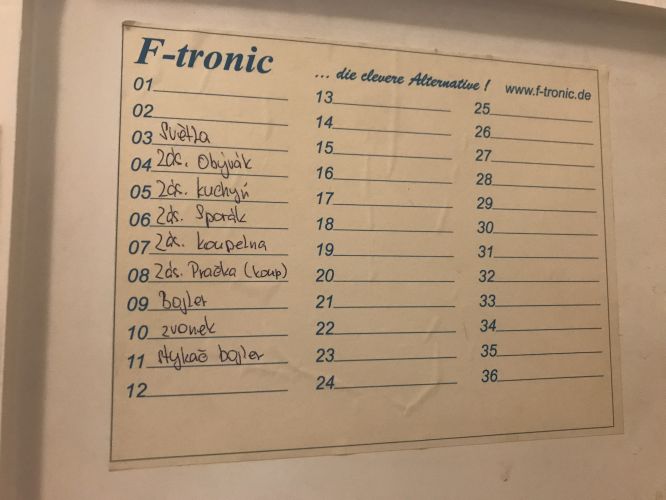 F-tronic
... die clevere Alternative !
www.f-tronic.de
01
02
03 Světla
04 Zás. Obývák
05 Zás. kuchyň
06 Zás. Sporák
07 Zás. koupelna
08 Zás. Pračka (koup)
09 Bojler
10 zvonek
11 stykač bojler
12
13
14
15
16
17
18
19
20
21
22
23
24
25
26
27
28
29
30
31
32
33
34
35
36